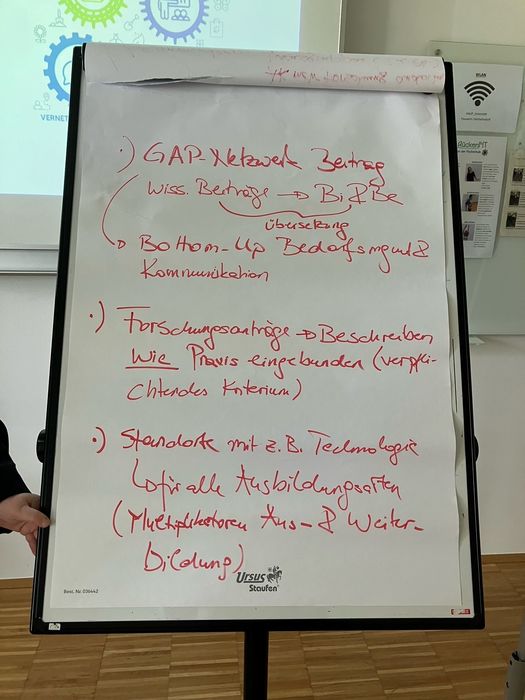 VERNET
WLAN
RückenFIT
•) GAP-Netzwerk Beitrag
Wiss. Beiträge → Bi & Be
Übersetzung
→ Bottom-Up Bedarfsmgmt &
Kommunikation
•) Forschungsanträge → Beschreiben
WIE Praxis eingebunden (verpfli-
chtendes Kriterium)
•) Standorte mit z.B. Technologie
↳ für alle Ausbildungsarten
(Multiplikatoren Aus- & Weiter-
bildung)
Ursus
Staufen
Best. Nr. 036442